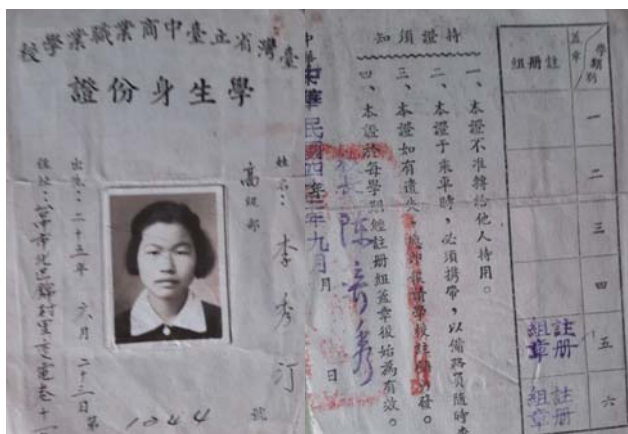 臺灣省立臺中商業職業學校
學生身份證
高級部
姓名：李秀汀
出生：二十五年 六月 二十三日
第1044號
持證須知
一、本證不准轉給他人持用。
二、本證于乘車時，必須携帶，以備路員隨時查
三、本證如有遺失，
四、本證於每學期經註冊組蓋章後始為有效。
中華民國四
年九月
月
日
學期別
蓋章
註冊組
一
二
三
四
五
註冊組章
六
註冊組章